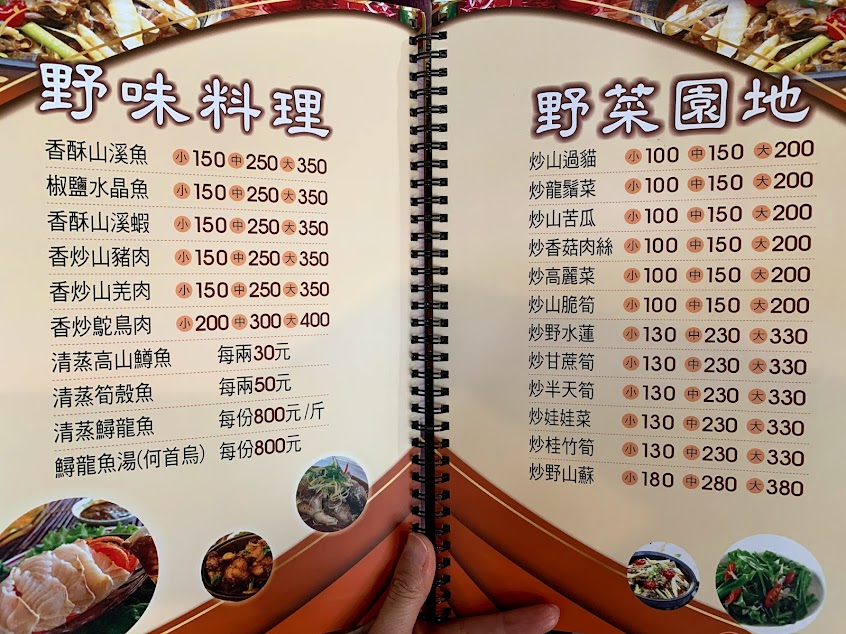 野味料理
香酥山溪魚 小150 中250 大350
椒鹽水晶魚 小150 中250 大350
香酥山溪蝦 小150 中250 大350
香炒山豬肉 小150 中250 大350
香炒山羌肉 小150 中250 大350
香炒鴕鳥肉 小200 中300 大400
清蒸高山鱒魚 每兩30元
清蒸筍殼魚 每兩50元
清蒸鱘龍魚 每份800元/斤
鱘龍魚湯(何首烏) 每份800元
野菜園地
炒山過貓 小100 中150 大200
炒龍鬚菜 小100 中150 大200
炒山苦瓜 小100 中150 大200
炒香菇肉絲 小100 中150 大200
炒高麗菜 小100 中150 大200
炒山脆筍 小100 中150 大200
炒野水蓮 小130 中230 大330
炒甘蔗筍 小130 中230 大330
炒半天筍 小130 中230 大330
炒娃娃菜 小130 中230 大330
炒桂竹筍 小130 中230 大330
炒野山蘇 小180 中280 大380